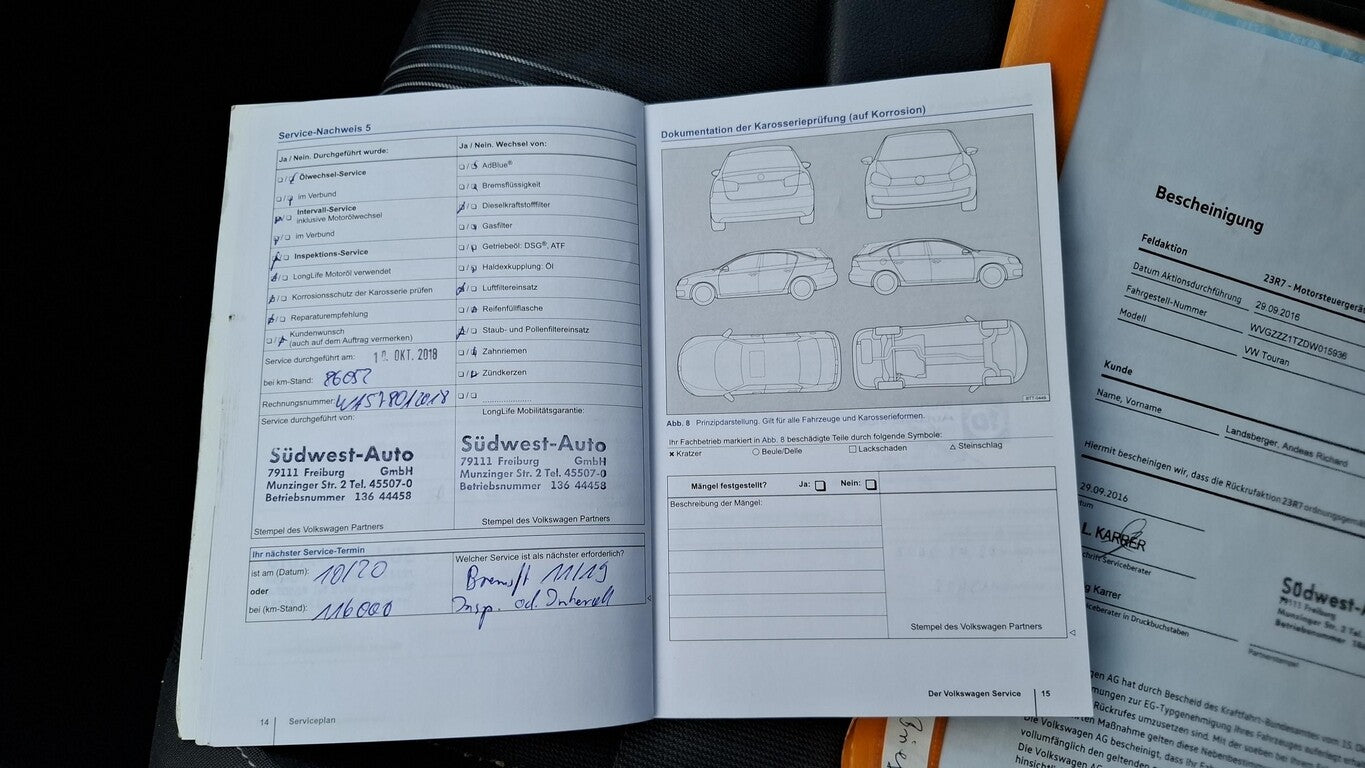 Service-Nachweis 5
Ja / Nein. Durchgeführt wurde:
Ölwechsel-Service
im Verbund
Intervall-Service
inklusive Motorölwechsel
im Verbund
Inspektions-Service
LongLife Motoröl verwendet
Korrosionsschutz der Karosserie prüfen
Reparaturempfehlung
Kundenwunsch
(auch auf dem Auftrag vermerken)
Service durchgeführt am: OKT. 2018
bei km-Stand: 86052
Rechnungsnummer:
Service durchgeführt von:
Südwest-Auto
79111 Freiburg GmbH
Munzinger Str. 2 Tel. 45507-0
Betriebsnummer 136 44458
Stempel des Volkswagen Partners
Ja / Nein. Wechsel von:
AdBlue®
Bremsflüssigkeit
Dieselkraftstofffilter
Gasfilter
Getriebeöl: DSG®, ATF
Haldexkupplung: Öl
Luftfiltereinsatz
Reifenfüllflasche
Staub- und Pollenfiltereinsatz
Zahnriemen
Zündkerzen
LongLife Mobilitätsgarantie:
Südwest-Auto
79111 Freiburg GmbH
Munzinger Str. 2 Tel. 45507-0
Betriebsnummer 136 44458
Stempel des Volkswagen Partners
Ihr nächster Service-Termin
ist am (Datum): 10/20
oder
bei (km-Stand): 116000
Welcher Service ist als nächster erforderlich?
Bremsfl 11/19
Insp. od. Intervall
14 Serviceplan
Dokumentation der Karosserieprüfung (auf Korrosion)
Abb. 8 Prinzipdarstellung. Gilt für alle Fahrzeuge und Karosserieformen.
Ihr Fachbetrieb markiert in Abb. 8 beschädigte Teile durch folgende Symbole:
× Kratzer ○ Beule/Delle □ Lackschaden △ Steinschlag
Mängel festgestellt? Ja: Nein:
Beschreibung der Mängel:
Stempel des Volkswagen Partners
Der Volkswagen Service 15
Bescheinigung
Feldaktion 23R7 - Motorsteuergerä
Datum Aktionsdurchführung 29.09.2016
Fahrgestell-Nummer WVGZZZ1TZDW015936
Modell VW Touran
Kunde
Name, Vorname Landsberger, Andeas Richard
Hiermit bescheinigen wir, dass die Rückrufaktion 23R7 ordnungsgema
29.09.2016
tum
L. KARRER
chrift Serviceberater
g Karrer
rviceberater in Druckbuchstaben
Südwest-
79111 Freiburg
Munzinger Str. 2
Betriebsnummer
Partnerstempel
gen AG hat durch Bescheid des Kraftfahrt-Bundesamtes vom
mungen zur EG-Typgenehmigung Ihres Fahrzeuges
Rückrufes umzusetzen sind. Mit der soeben bei Ihrem
rten Maßnahme gelten diese Nebenbestimm
Die Volkswagen AG bescheinigt, dass Ihr Fah
vollumfänglich den geltenden
Die Volkswagen AG
hinsichtli